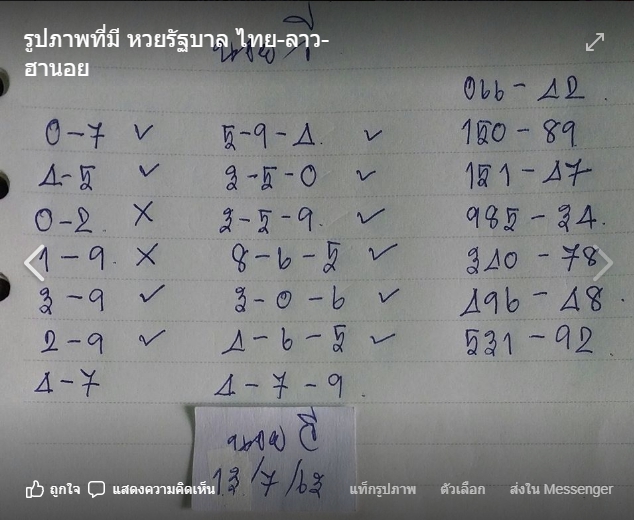 รูปภาพที่มี หวยรัฐบาล ไทย-ลาว-
ฮานอย
066 - 42
0-7 ✓ 5-9-4 ✓ 150 - 89
4-5 ✓ 3-5-0 ✓ 151 - 47
0-2 X 3-5-9 ✓ 985 - 34
1-9 X 8-6-5 ✓ 340 - 78
3-9 ✓ 3-0-6 ✓ 496 - 48
2-9 ✓ 4-6-5 ✓ 531 - 92
4-7 4-7-9
13/7/63
ถูกใจ แสดงความคิดเห็น แท็กรูปภาพ ตัวเลือก ส่งใน Messenger